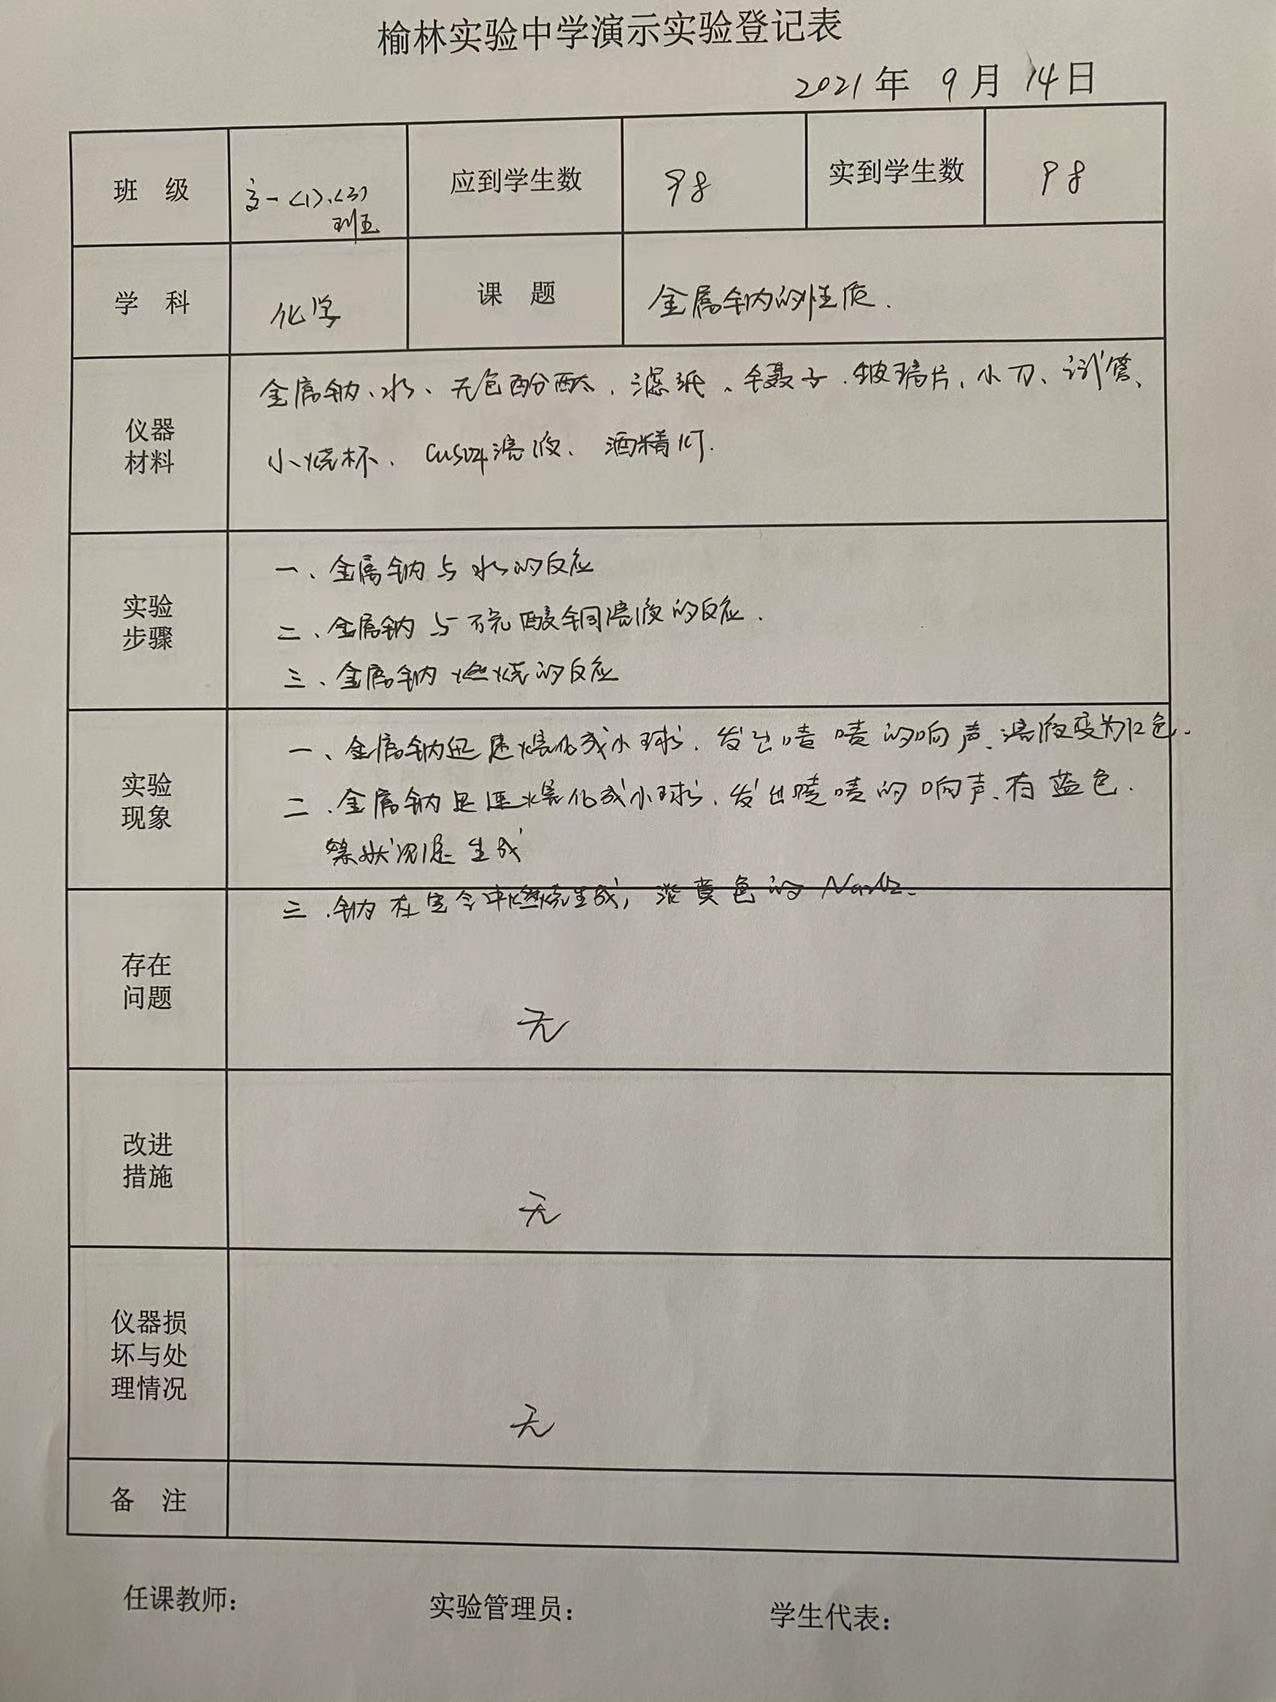 榆林实验中学演示实验登记表
2021年 9月 14日
班 级 高一<1>、<3> 应到学生数 98 实到学生数 98
班
学 科 化学 课 题 金属钠的性质.
仪器 材料 金属钠、水、无色酚酞、滤纸、镊子、玻璃片、小刀、试管、
小烧杯、CuSO4溶液、酒精灯.
实验 步骤 一、金属钠与水的反应
二、金属钠与硫酸铜溶液的反应.
三、金属钠燃烧的反应
实验 现象 一、金属钠迅速熔化成小球,发出啧啧的响声、溶液变为红色.
二.金属钠迅速熔化成小球,发出啧啧的响声、有蓝色.
絮状沉淀生成
三.钠在空气中燃烧生成,淡黄色的Na2O2.
存在 问题
无
改进 措施
无
仪器损 坏与处 理情况
无
备 注
任课教师: 实验管理员: 学生代表: